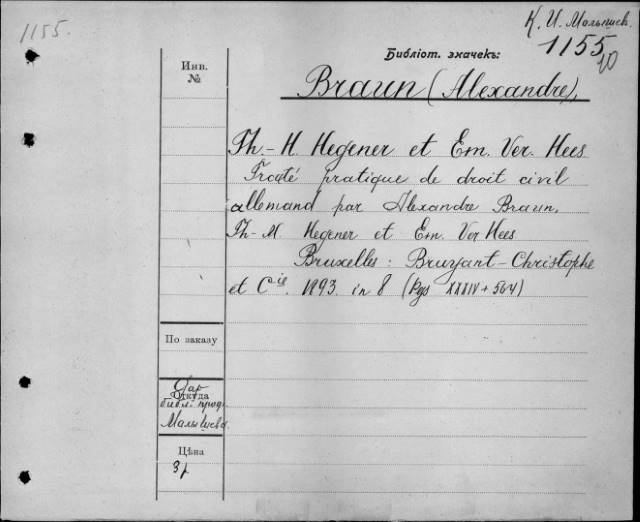 1155.
К. И. Малышев.
Библіот. значекъ:
1155
20
Инв.
№
Braun (Alexandre),
Th.-H. Hegener et Em. Ver. Hees
Traité pratique de droit civil
allemand par Alexandre Braun,
Th.-M. Hegener et Em. Ver Hees
Bruxelles: Bruyant-Christophe
et Cie. 1893. in 8 (pgs XXXIV + 564)
По заказу
Дар
Откуда
библ. проф.
Малышева.
Цѣна
3р